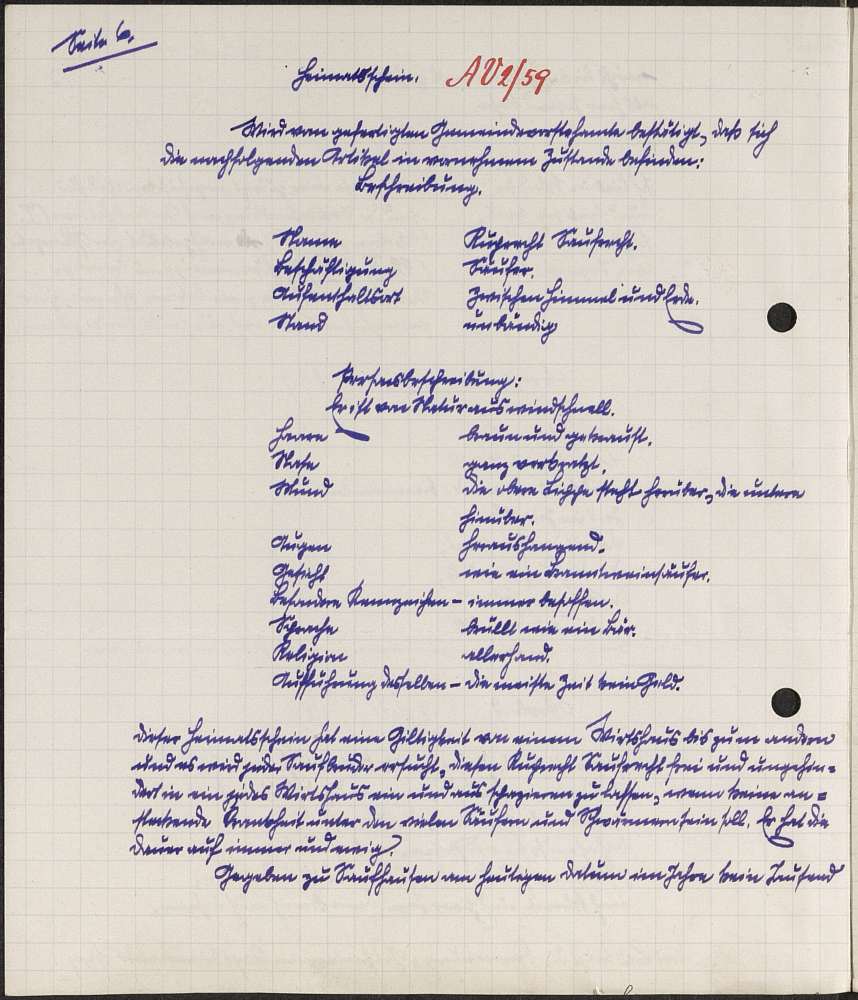 Seite 6.
Heimatsschein. AV2/59
Wird vom gefertigten Gemeindevorsteheramte bestätigt, daß sich
die nachfolgenden Artikel in vornehmem Zustande befinden:
Beschreibung.
Name Ruprecht Saufrecht.
Beschäftigung Säufer.
Aufenthaltsort Zwischen Himmel und Erde.
Stand unbändig
Personsbeschreibung:
Er ist von Natur aus windschnell.
Haare braun und gekraust.
Nase ganz verkratzt.
Mund die obere Lippe steht herüber, die untere
hinüber.
Augen heraushangend.
Gesicht wie ein Branntweinsäufer.
Besondere Kennzeichen – immer besoffen.
Sprache brüllt wie ein Bär.
Religion allerhand.
Aufführung desselben – die meiste Zeit kein Geld.
Dieser Heimatsschein hat eine Giltigkeit von einem Wirtshaus bis zum andern
und es wird jeder Saufbruder ersucht, diesen Ruprecht Saufrecht frei und ungehin=
dert in ein jedes Wirtshaus ein und aus spazieren zu lassen, wenn keine an=
steckende Krankheit unter den vielen Säufern und Schwärmern sein soll. Er hat die
Dauer auf immer und ewig.
Gegeben zu Saufhausen am heutigen Datum im Jahre kein Tausend